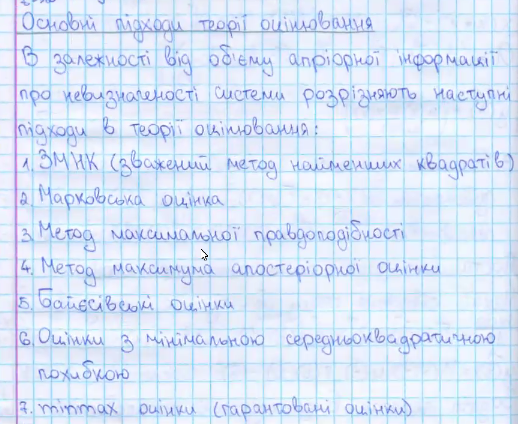 Основні підходи теорії оцінювання
В залежності від об'єму апріорної інформації
про невизначеності системи розрізняють наступні
підходи в теорії оцінювання:
1. ЗМНК (зважений метод найменших квадратів)
2. Марковська оцінка
3. Метод максимальної правдоподібності
4. Метод максимума апостеріорної оцінки
5. Байєсівські оцінки
6. Оцінки з мінімальною середньоквадратичною
похибкою
7. minmax оцінки (гарантовані оцінки)